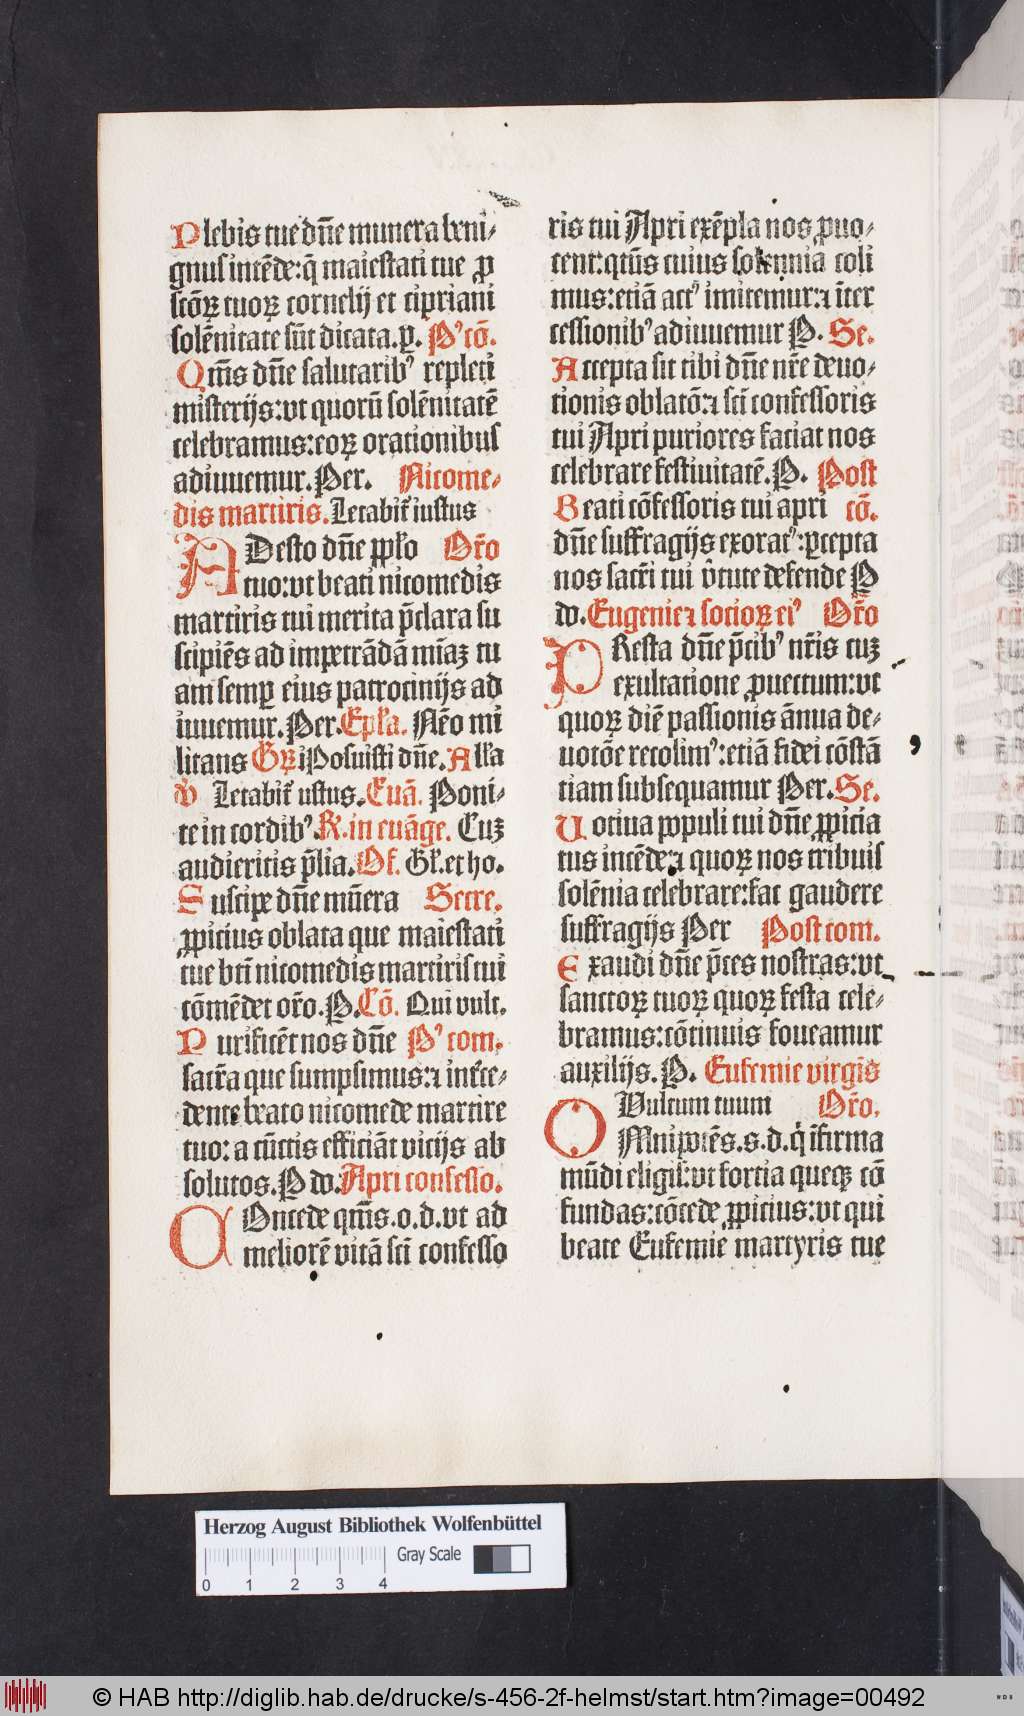 Plebis tue dn̄e munera beni⸗
gnus intēde: q̄ maiestati tue ꝓ
scōꝝ tuoꝝ cornelij et cipriani
solēnitate sūt dicata. ꝑ. P' cō.
Qm̄s dn̄e salutarib' repleti
misterijs: vt quorū solēnitatē
celebramus: eoꝝ orationibus
adiuuemur. Per. Nicome⸗
dis martiris. Letabit᷑ iustus
ADesto dn̄e ppl̄o Or̄o
tuo: vt beati nicomedis
martiris tui merita p̄clara su
scipiēs ad impetrādā mīaꝫ tu
am semꝑ eius patrocinijs ad
iuuemur. Per. Epl̄a. Nēo mi
litans Gꝝ i Posuisti dn̄e. All̄a
v̄ Letabit᷑ ustus. Euā. Poni⸗
te in cordib'. R. in euāge. Cuꝫ
audieritis p̄lia. Of. Gl̄. et ho.
Suscipe dn̄e mūera Secre.
ꝓpicius oblata que maiestati
tue bt̄i nicomedis martiris tui
cōmēdet or̄o. P. Cō. Qui vult.
Purificēt nos dn̄e P' com.
sacr̄a que sumpsimus: ⁊ int̄ce⸗
dente beato nicomede martire
tuo: a cūctis efficiāt vicijs ab
solutos. P do. Apri confesso.
COncede qm̄s. o. d. vt ad
meliorē vitā sci̅ confesso
ris tui Apri exēpla nos ꝓuo⸗
cent: qtn̄s cuius solennia coli
mus: etiā act' imitemur: ⁊ īter
cessionib' adiuuemur P. Se.
Accepta sit tibi dn̄e nr̄e deuo⸗
tionis oblatō: ⁊ sci̅ confessoris
tui Apri puriores faciat nos
celebrare festiuitatē. P. Post
Beati cōfessoris tui apri cō.
dn̄e suffragijs exorat': ꝑcepta
nos sacr̄i tui v̄tute defende P
do. Eugenie ⁊ socioꝝ ei' Or̄o
PResta dn̄e p̄cib' nr̄is cuꝫ
exultatione ꝓuectum: vt
quoꝝ diē passionis ānua de⸗
uotōe recolim': etiā fidei cōstā
tiam subsequamur Per. Se.
Uotiua populi tui dn̄e ꝓpicia
tus intēde: ⁊ quoꝝ nos tribuis
solēnia celebrare: fac gaudere
suffragijs Per Post com.
Exaudi dn̄e p̄ces nostras: vt
sanctoꝝ tuoꝝ quoꝝ festa cele⸗
bramus: cōtinuis foueamur
auxilijs. P. Eufemie virgis
Vultum tuum Or̄o.
OMnipotēs. s. d. q̄ īfirma
mūdi eligis: vt fortia queqꝫ cō
fundas: cōcede ꝓpicius: vt qui
beate Eufemie martyris tue
Herzog August Bibliothek Wolfenbüttel
Gray Scale
0 1 2 3 4
© HAB http://diglib.hab.de/drucke/s-456-2f-helmst/start.htm?image=00492